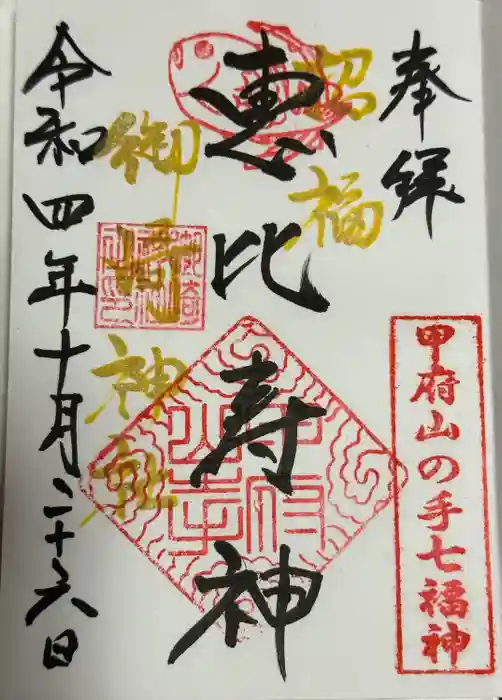 奉拝
甲府山の手七福神
招福
恵比寿神
御崎神社
令和四年十月二十六日